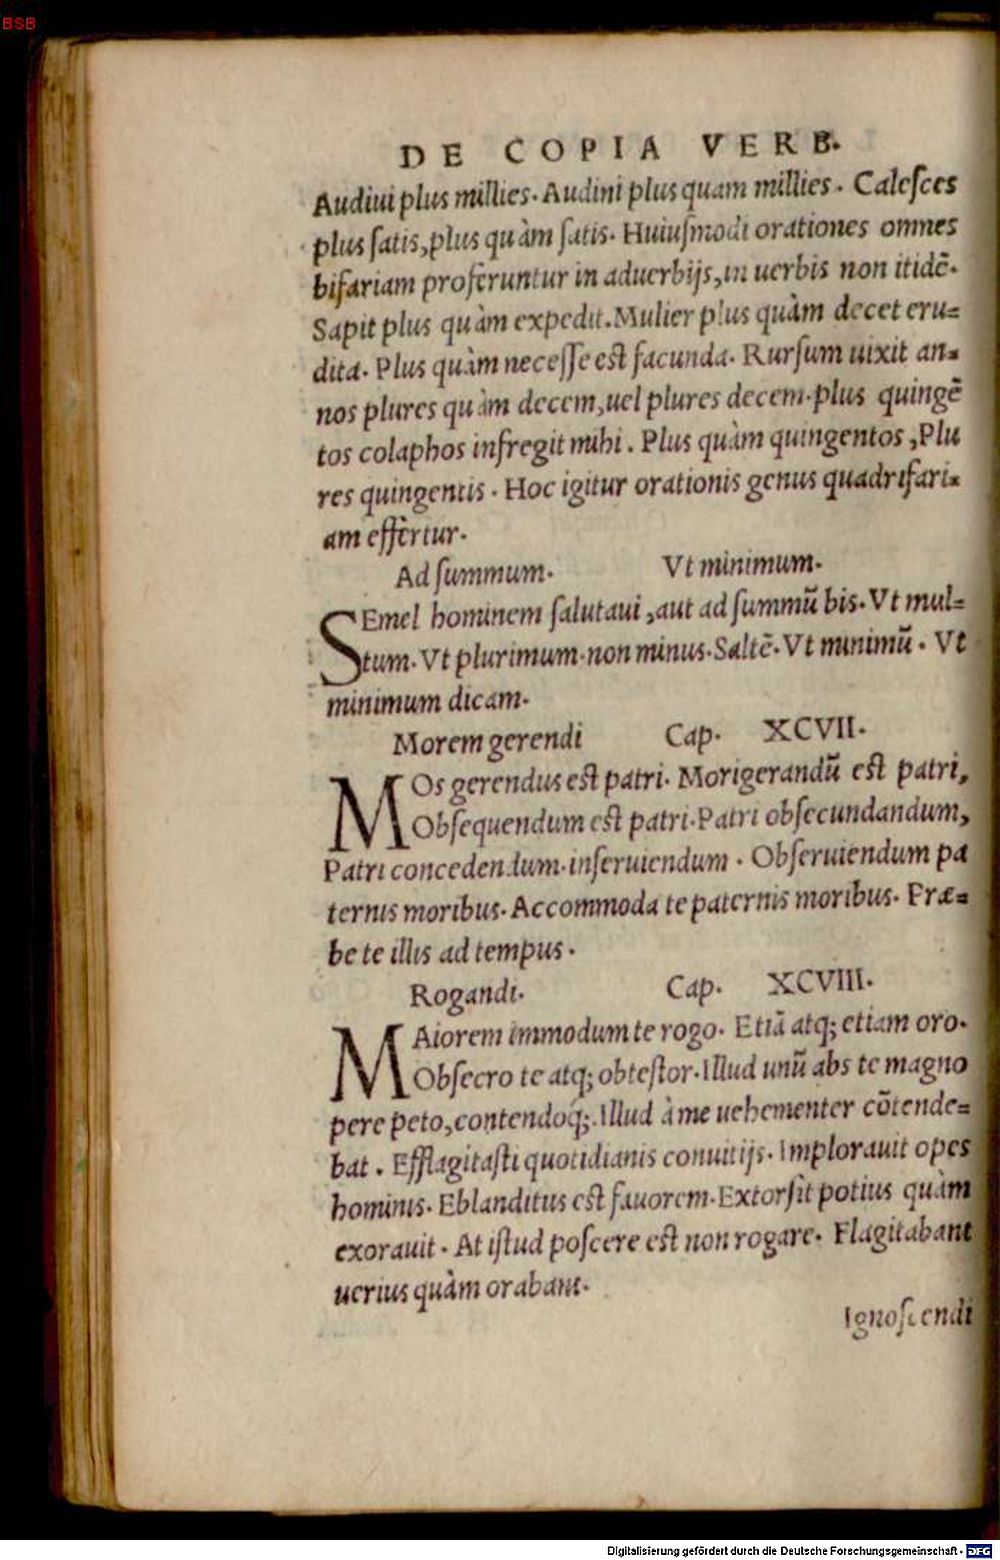 BSB
DE COPIA VERB.
Audiui plus millies. Audini plus quam millies. Calesces
plus satis, plus quàm satis. Huiusmodi orationes omnes
bifariam proferuntur in aduerbijs, in uerbis non itidē.
Sapit plus quàm expedit. Mulier plus quàm decet eru=
dita. Plus quàm necesse est facunda. Rursum uixit an=
nos plures quàm decem, uel plures decem. plus quingē
tos colaphos infregit mihi. Plus quàm quingentos, Plu
res quingentis. Hoc igitur orationis genus quadrifari=
am effèrtur.
Ad summum. Vt minimum.
SEmel hominem salutaui, aut ad summū bis. Vt mul=
tum. Vt plurimum. non minus. Saltē. Vt minimū. Vt
minimum dicam.
Morem gerendi Cap. XCVII.
MOs gerendus est patri. Morigerandū est patri,
Obsequendum est patri. Patri obsecundandum,
Patri concedendum. inseruiendum. Obseruiendum pa
ternis moribus. Accommoda te paternis moribus. Præ=
be te illis ad tempus.
Rogandi. Cap. XCVIII.
MAiorem immodum te rogo. Etiā atq; etiam oro.
Obsecro te atq; obtestor. Illud unū abs te magno
pere peto, contendoq;. Illud à me uehementer cōtende=
bat. Efflagitasti quotidianis conuitijs. Implorauit opes
hominis. Eblanditus est fauorem. Extorsit potius quàm
exorauit. At istud poscere est non rogare. Flagitabant
uerius quàm orabant.
Ignoscendi
Digitalisierung gefördert durch die Deutsche Forschungsgemeinschaft - DFG